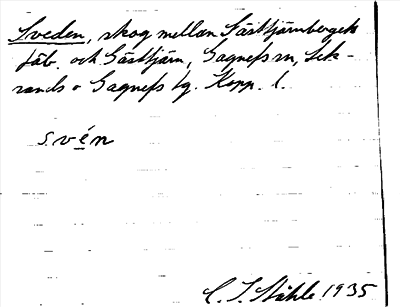 Sveden, skog mellan Gästtjärnbergets
fäb. och Gästtjärn, Gagnefs sn, Lek-
sands o Gagnefs tg. Kopp. l.
svén
C. I. Ståhle 1935